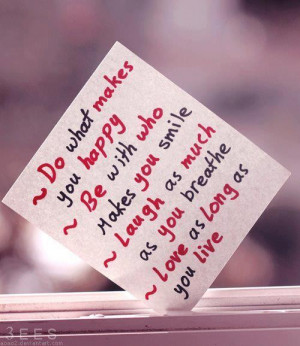 ~ Do what makes
you happy
~ Be with who
Makes you smile
~ Laugh as much
as you breathe
~ Love as long as
you live
3EES